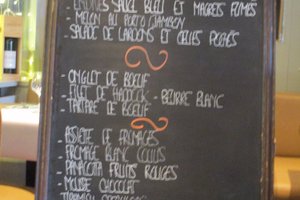 SAUCE BLEU ET MAGRETS FUMÉS
- MELON AU PORTO JAMBON
- SALADE DE LARDONS ET OEUFS POCHÉS
- ONGLET DE BOEUF
- FILET DE HADDOCK - BEURRE BLANC
- TARTARE DE BOEUF
- ASSIETTE DE FROMAGES
- FROMAGE BLANC COULIS
- PANACOTTA FRUITS ROUGES
- MOUSSE CHOCOLAT